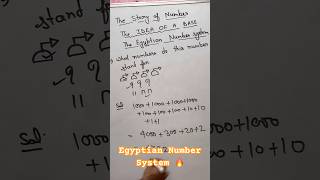 The Story of Number
The IDEA OF A BASE
The Egyptian Number system
what numbers do this numbers
stand for
Sol: 1000+1000+1000+1000
+100+100+100+10+10
+1+1
= 4000+300+20+2
Egyptian Number
System 🔥
1000
+10